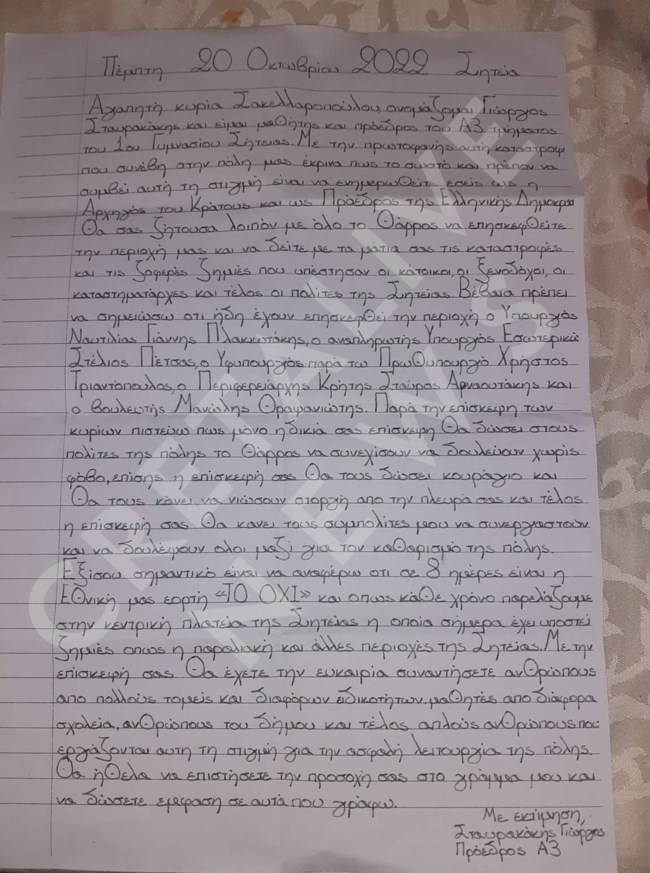 Πέμπτη 20 Οκτωβρίου 2022 Σητεία
Αγαπητή κυρία Σακελλαροπούλου, ονομάζομαι Γιώργος
Σταυρακάκης και είμαι μαθητης και πρόεδρος του Α3 τμήματος
του 1ου Γυμνασίου Σητείας. Με την πρωτοφανής αυτή καταστροφή
που συνέβη στην πόλη μας έκρινα πως το σωστό και πρέπον να
συμβεί αυτή τη στιγμή είναι να ενημερωθείτε εσείς ως η
Αρχηγός του Κράτους και ως Πρόεδρος της Ελληνικής Δημοκρα
Θα σας ζητούσα λοιπόν με όλο το Θάρρος να επησκεφθείτε
την περιοχή μας και να δείτε με τα μάτια σας τις καταστροφές
και τις ζοφερές ζημιές που υπέστησαν οι κάτοικοι, οι ξενοδόχοι, οι
καταστηματάρχες και τέλος οι πολίτες της Σητείας. Βέβαια πρέπει
να σημειώσω οτι ήδη έχουν επησκεφθεί την περιοχή ο Υπουργός
Ναυτιλίας Γιάννης Πλακιωτάκης, ο αναπληρωτής Υπουργός Εσωτερικών
Στέλιος Πέτσας, ο Υφυπουργός παρά τω Πρωθυπουργό Χρήστος
Τριαντόπουλος, ο Περιφερειάρχης Κρήτης Σταύρος Αρναουτάκης και
ο βουλευτής Μανώλης Θραψανιώτης. Παρά την επίσκεψη των
κυρίων πιστεύω πως μόνο η δικιά σας επίσκεψη Θα δώσει στους
πολίτες της πόλης το Θάρρος να συνεχίσουν να δουλεύουν χωρίς
φόβο, επίσης η επίσκεψή σας Θα τους δώσει κουράγιο και
Θα τους κάνει να νιώσουν στοργή απο την πλευρά σας και τέλος
η επίσκεψή σας Θα κανει τους συμπολίτες μου να συνεργαστούν
και να δουλέψουν ολοι μαζί για τον καθαρισμό της πόλης.
Εξίσου σημαντικό είναι να αναφέρω οτι σε 8 ημέρες είναι η
Εθνική μας εορτή «ΤΟ ΟΧΙ» και οπως κάθε χρόνο παρελάζουμε
στην κεντρική πλατεία της Σητείας η οποία σήμερα έχει υποστεί
ζημιές οπως η παραλιακή και άλλες περιοχές της Σητείας. Με την
επίσκεψή σας Θα έχετε την ευκαιρία συναντήσετε ανθρώπους
απο πολλούς τομείς και διαφόρων ειδικοτήτων. μαθητές απο διάφορα
σχολεία, ανθρώπους του δήμου και τέλος απλούς ανθρώπους που
εργάζονται αυτη τη στιγμή για την ασφαλή λειτουργία της πόλης.
Θα ήθελα να επιστήσετε την προσοχή σας στο γράμμα μου και
να δώσετε έμφαση σε αυτά που γράφω.
Με εκτίμηση,
Σταυρακάκης Γιώργος
Πρόεδρος Α3
CRETALIVE
NEWS